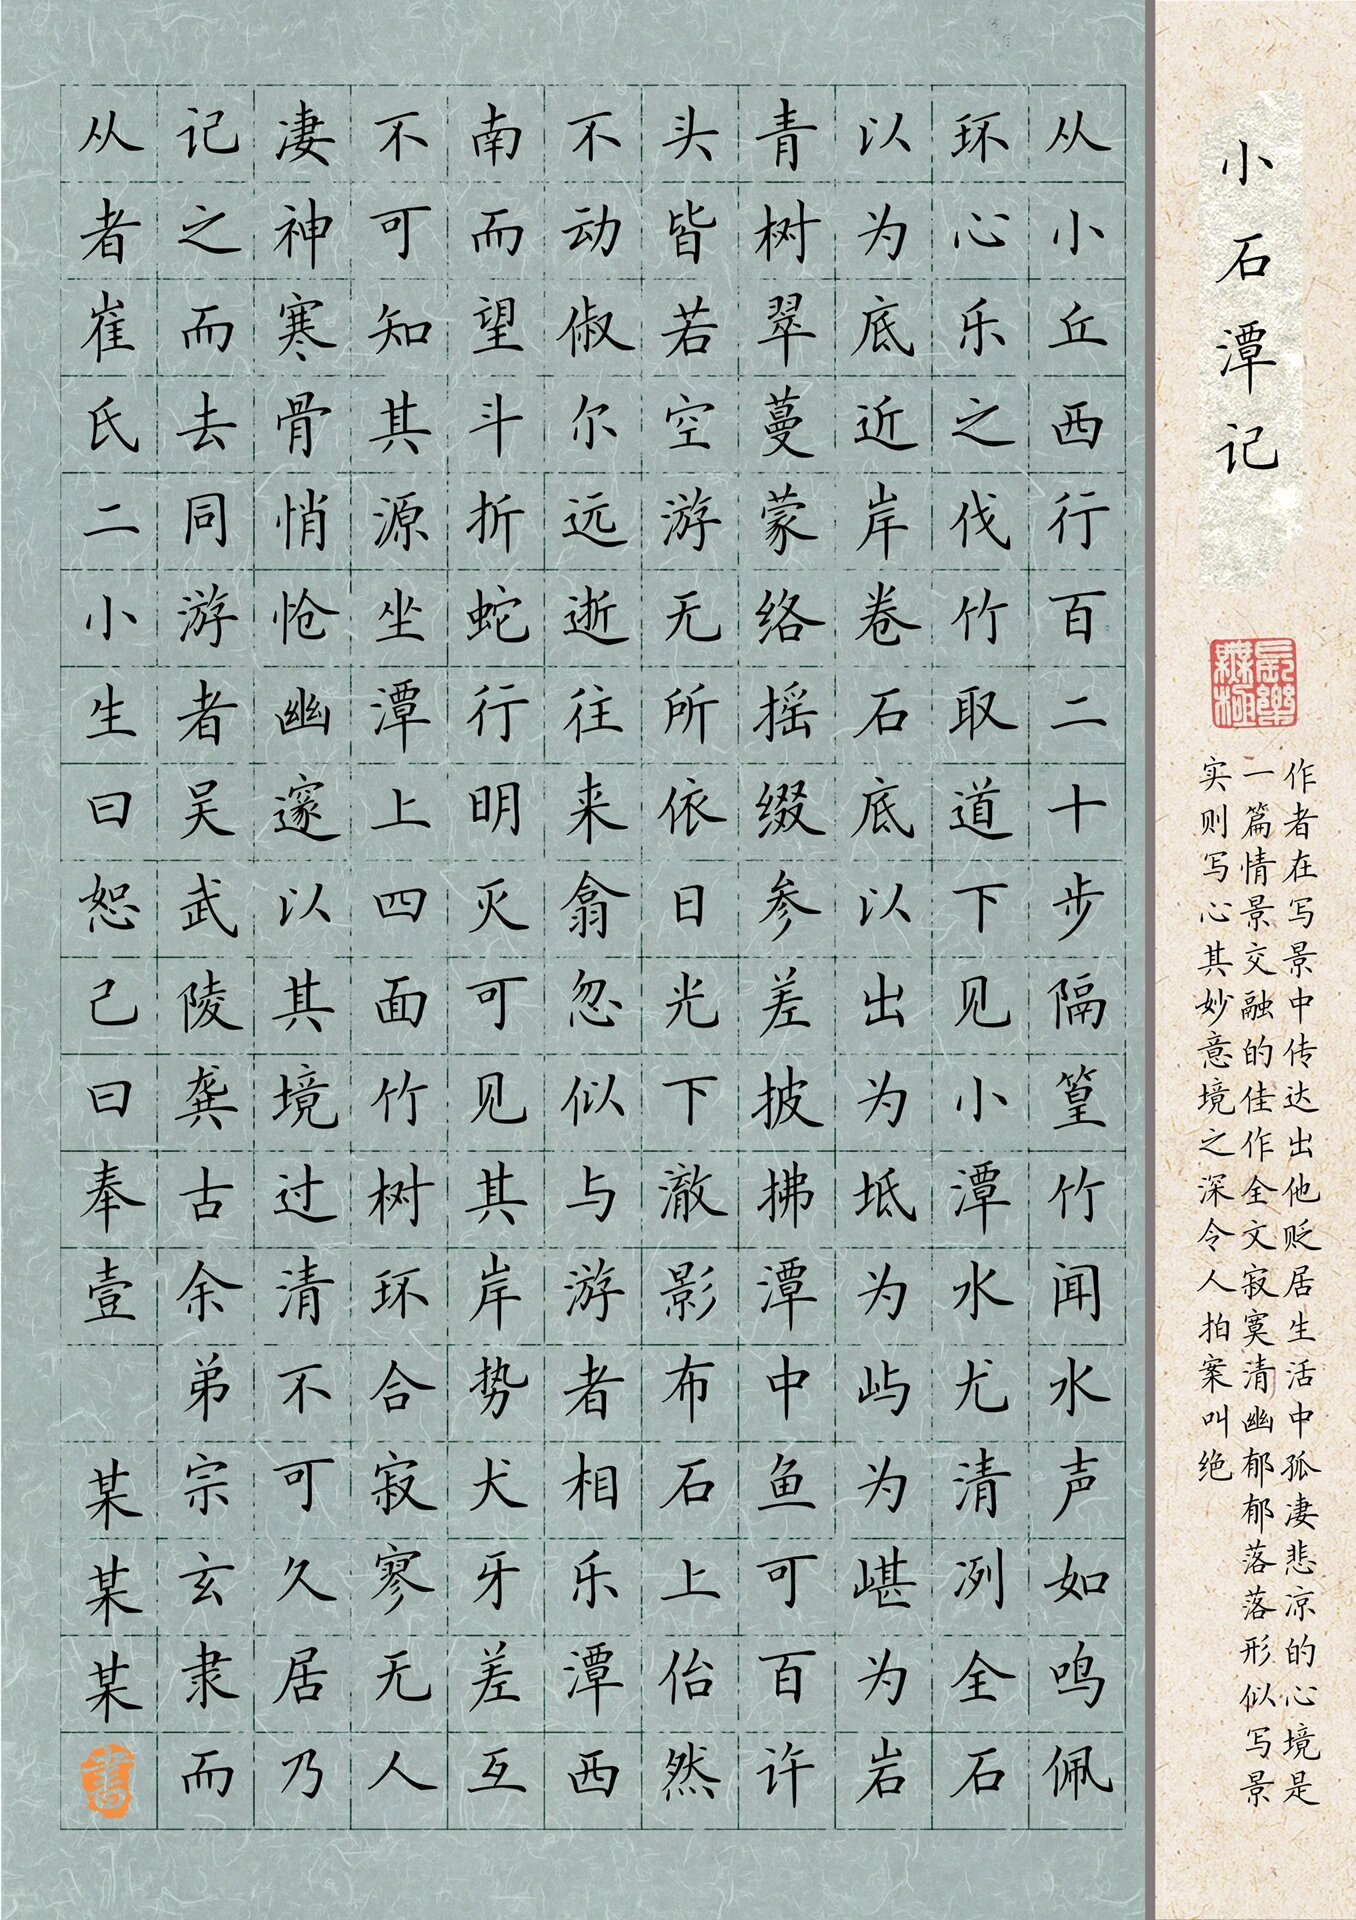 小石潭记
長樂
無極
作者在写景中传达出他贬居生活中孤凄悲凉的心境是
一篇情景交融的佳作全文寂寞清幽郁郁落落形似写景
实则写心其妙意境之深令人拍案叫绝
从小丘西行百二十步隔篁竹闻水声如鸣佩
环心乐之伐竹取道下见小潭水尤清冽全石
以为底近岸卷石底以出为坻为屿为嵁为岩
青树翠蔓蒙络摇缀参差披拂潭中鱼可百许
头皆若空游无所依日光下澈影布石上佁然
不动俶尔远逝往来翕忽似与游者相乐潭西
南而望斗折蛇行明灭可见其岸势犬牙差互
不可知其源坐潭上四面竹树环合寂寥无人
凄神寒骨悄怆幽邃以其境过清不可久居乃
记之而去同游者吴武陵龚古余弟宗玄隶而
从者崔氏二小生曰恕己曰奉壹 某某某 書